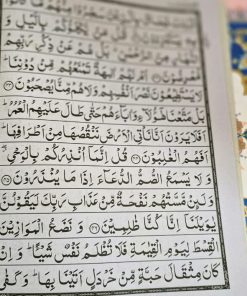 سَخِرُوْا مِنْهُمْ مَّا
قُلْ مَنْ يَّكْلَؤُكُمْ بِالَّيْلِ وَ
مِنَ الرَّحْمٰنِ ؕ بَلْ هُمْ عَنْ ذِكْرِ رَبِّهِمْ
مُّعْرِضُوْنَ ﴿۴۲﴾ اَمْ لَهُمْ اٰلِهَةٌ تَمْنَعُهُمْ مِّنْ دُوْنِنَا ؕ
لَا يَسْتَطِيْعُوْنَ نَصْرَ اَنْفُسِهِمْ وَلَا هُمْ مِّنَّا يُصْحَبُوْنَ ﴿۴۳﴾
بَلْ مَتَّعْنَا هٰۤؤُلَآءِ وَاٰبَآءَهُمْ حَتّٰى طَالَ عَلَيْهِمُ الْعُمُرُ ؕ
اَفَلَا يَرَوْنَ اَنَّا نَاْتِى الْاَرْضَ نَنْقُصُهَا مِنْ اَطْرَافِهَا ؕ
اَفَهُمُ الْغٰلِبُوْنَ ﴿۴۴﴾ قُلْ اِنَّمَاۤ اُنْذِرُكُمْ بِالْوَحْىِ ۖ
وَلَا يَسْمَعُ الصُّمُّ الدُّعَآءَ اِذَا مَا يُنْذَرُوْنَ ﴿۴۵﴾
وَلَئِنْ مَّسَّتْهُمْ نَفْحَةٌ مِّنْ عَذَابِ رَبِّكَ لَيَقُوْلُنَّ
يٰوَيْلَنَاۤ اِنَّا كُنَّا ظٰلِمِيْنَ ﴿۴۶﴾ وَ نَضَعُ الْمَوَازِيْنَ
الْقِسْطَ لِيَوْمِ الْقِيٰمَةِ فَلَا تُظْلَمُ نَفْسٌ شَيْئًا ؕ وَ اِنْ
كَانَ مِثْقَالَ حَبَّةٍ مِّنْ خَرْدَلٍ اَتَيْنَا بِهَا ؕ وَ كَفٰى